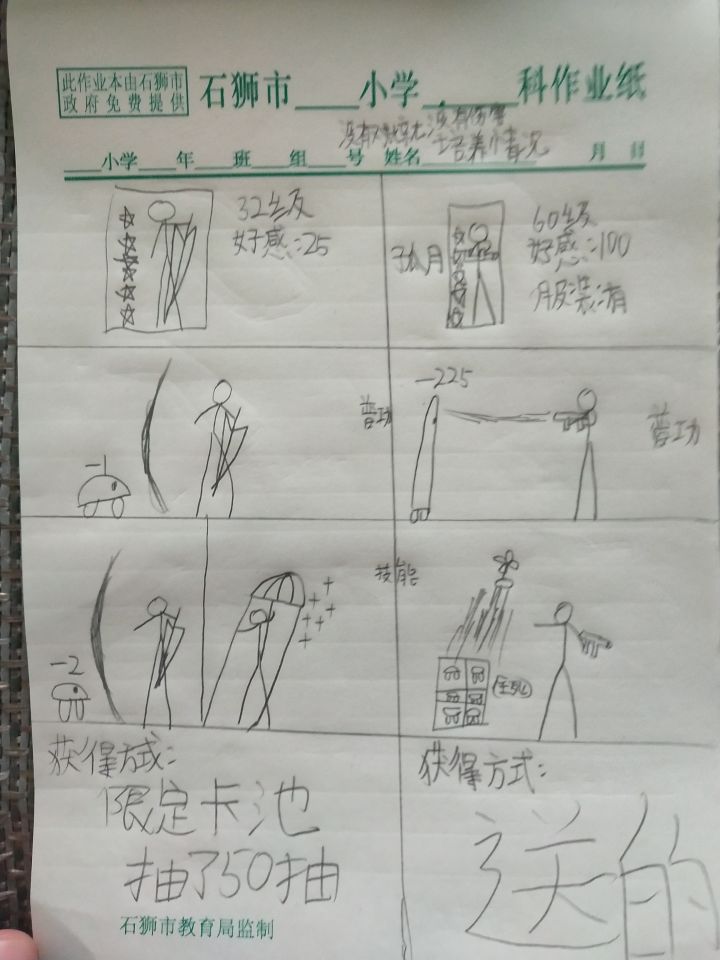 此作业本由石狮市
政府免费提供
石狮市____小学____科作业纸
没有对比就没有伤害
____小学____年____班____组____号 姓名____月 日
培养情况
32级
好感:25
子瓜月
60级
好感:100
服装:有
普功
-1
-225
普功
技能
-2
全死
获得方式:
限定卡池
抽了50抽
获得方式:
送的
石狮市教育局监制